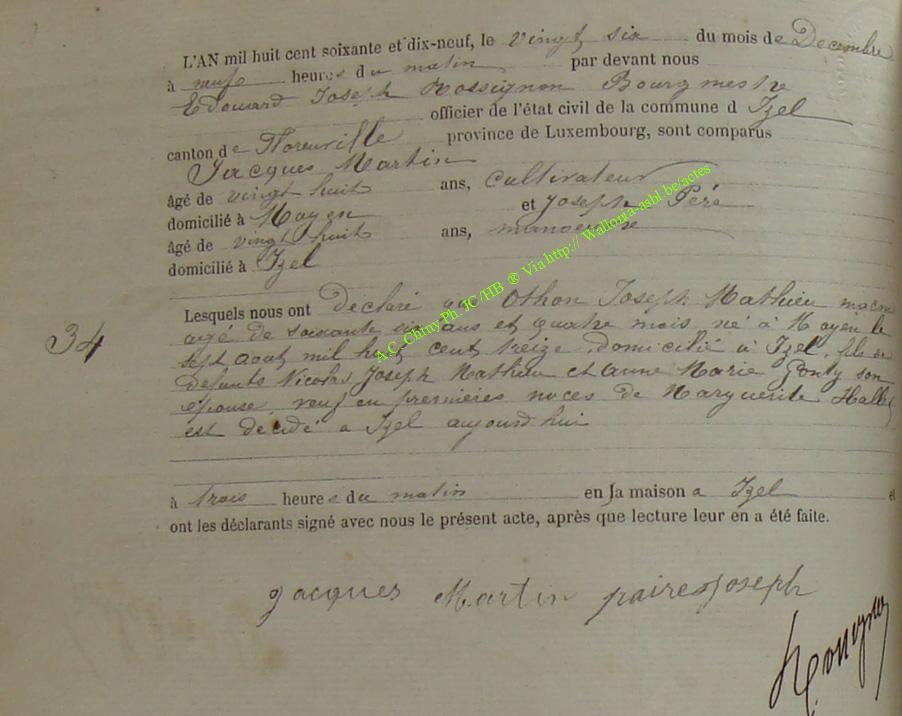 L'AN mil huit cent soixante et dix-neuf, le vingt six du mois de Decembre
à neuf heures du matin par devant nous
Edouard Joseph Rossignon Bourgmestre
officier de l'état civil de la commune d Izel
canton de Florenville province de Luxembourg, sont comparus
Jacques Martin
âgé de vingt huit ans, cultivateur
domicilié à Moyen et Joseph Péré
âgé de vingt huit ans, manoeuvre
domicilié à Izel
Lesquels nous ont Déclaré que Othon Joseph Mathieu macon
34
agé de soixante six ans et quatre mois, né à Moyen le
sept aout mil huit cent treize, domicilié à Izel, fils de
défunts Nicolas Joseph Mathieu et Anne Marie Ponty son
épouse, veuf en premières noces de Marguerite Halle
est décédé a Izel aujourd hui
à trois heures du matin en sa maison a Izel et
ont les déclarants signé avec nous le présent acte, après que lecture leur en a été faite.
Jacques Martin paires Joseph
A.C. Chiny Ph. JC/HB ® Via http:// Wallonia-asbl be/actes